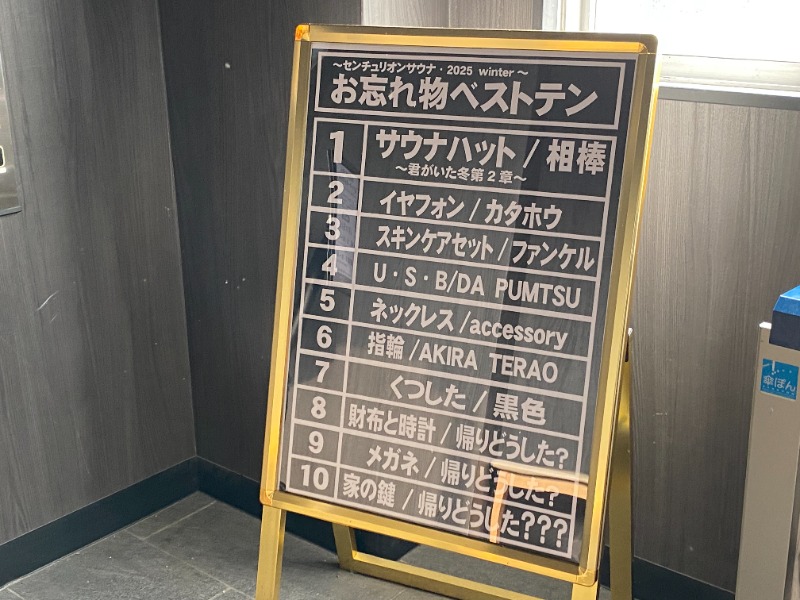 ～センチュリオンサウナ・2025 winter～
お忘れ物ベストテン
1 サウナハット / 相棒
～君がいた冬第2章～
2 イヤフォン / カタホウ
3 スキンケアセット / ファンケル
4 U・S・B/DA PUMTSU
5 ネックレス /accessory
6 指輪 /AKIRA TERAO
7 くつした / 黒色
8 財布と時計 / 帰りどうした?
9 メガネ / 帰りどうした?
10 家の鍵 / 帰りどうした???
傘ぽん